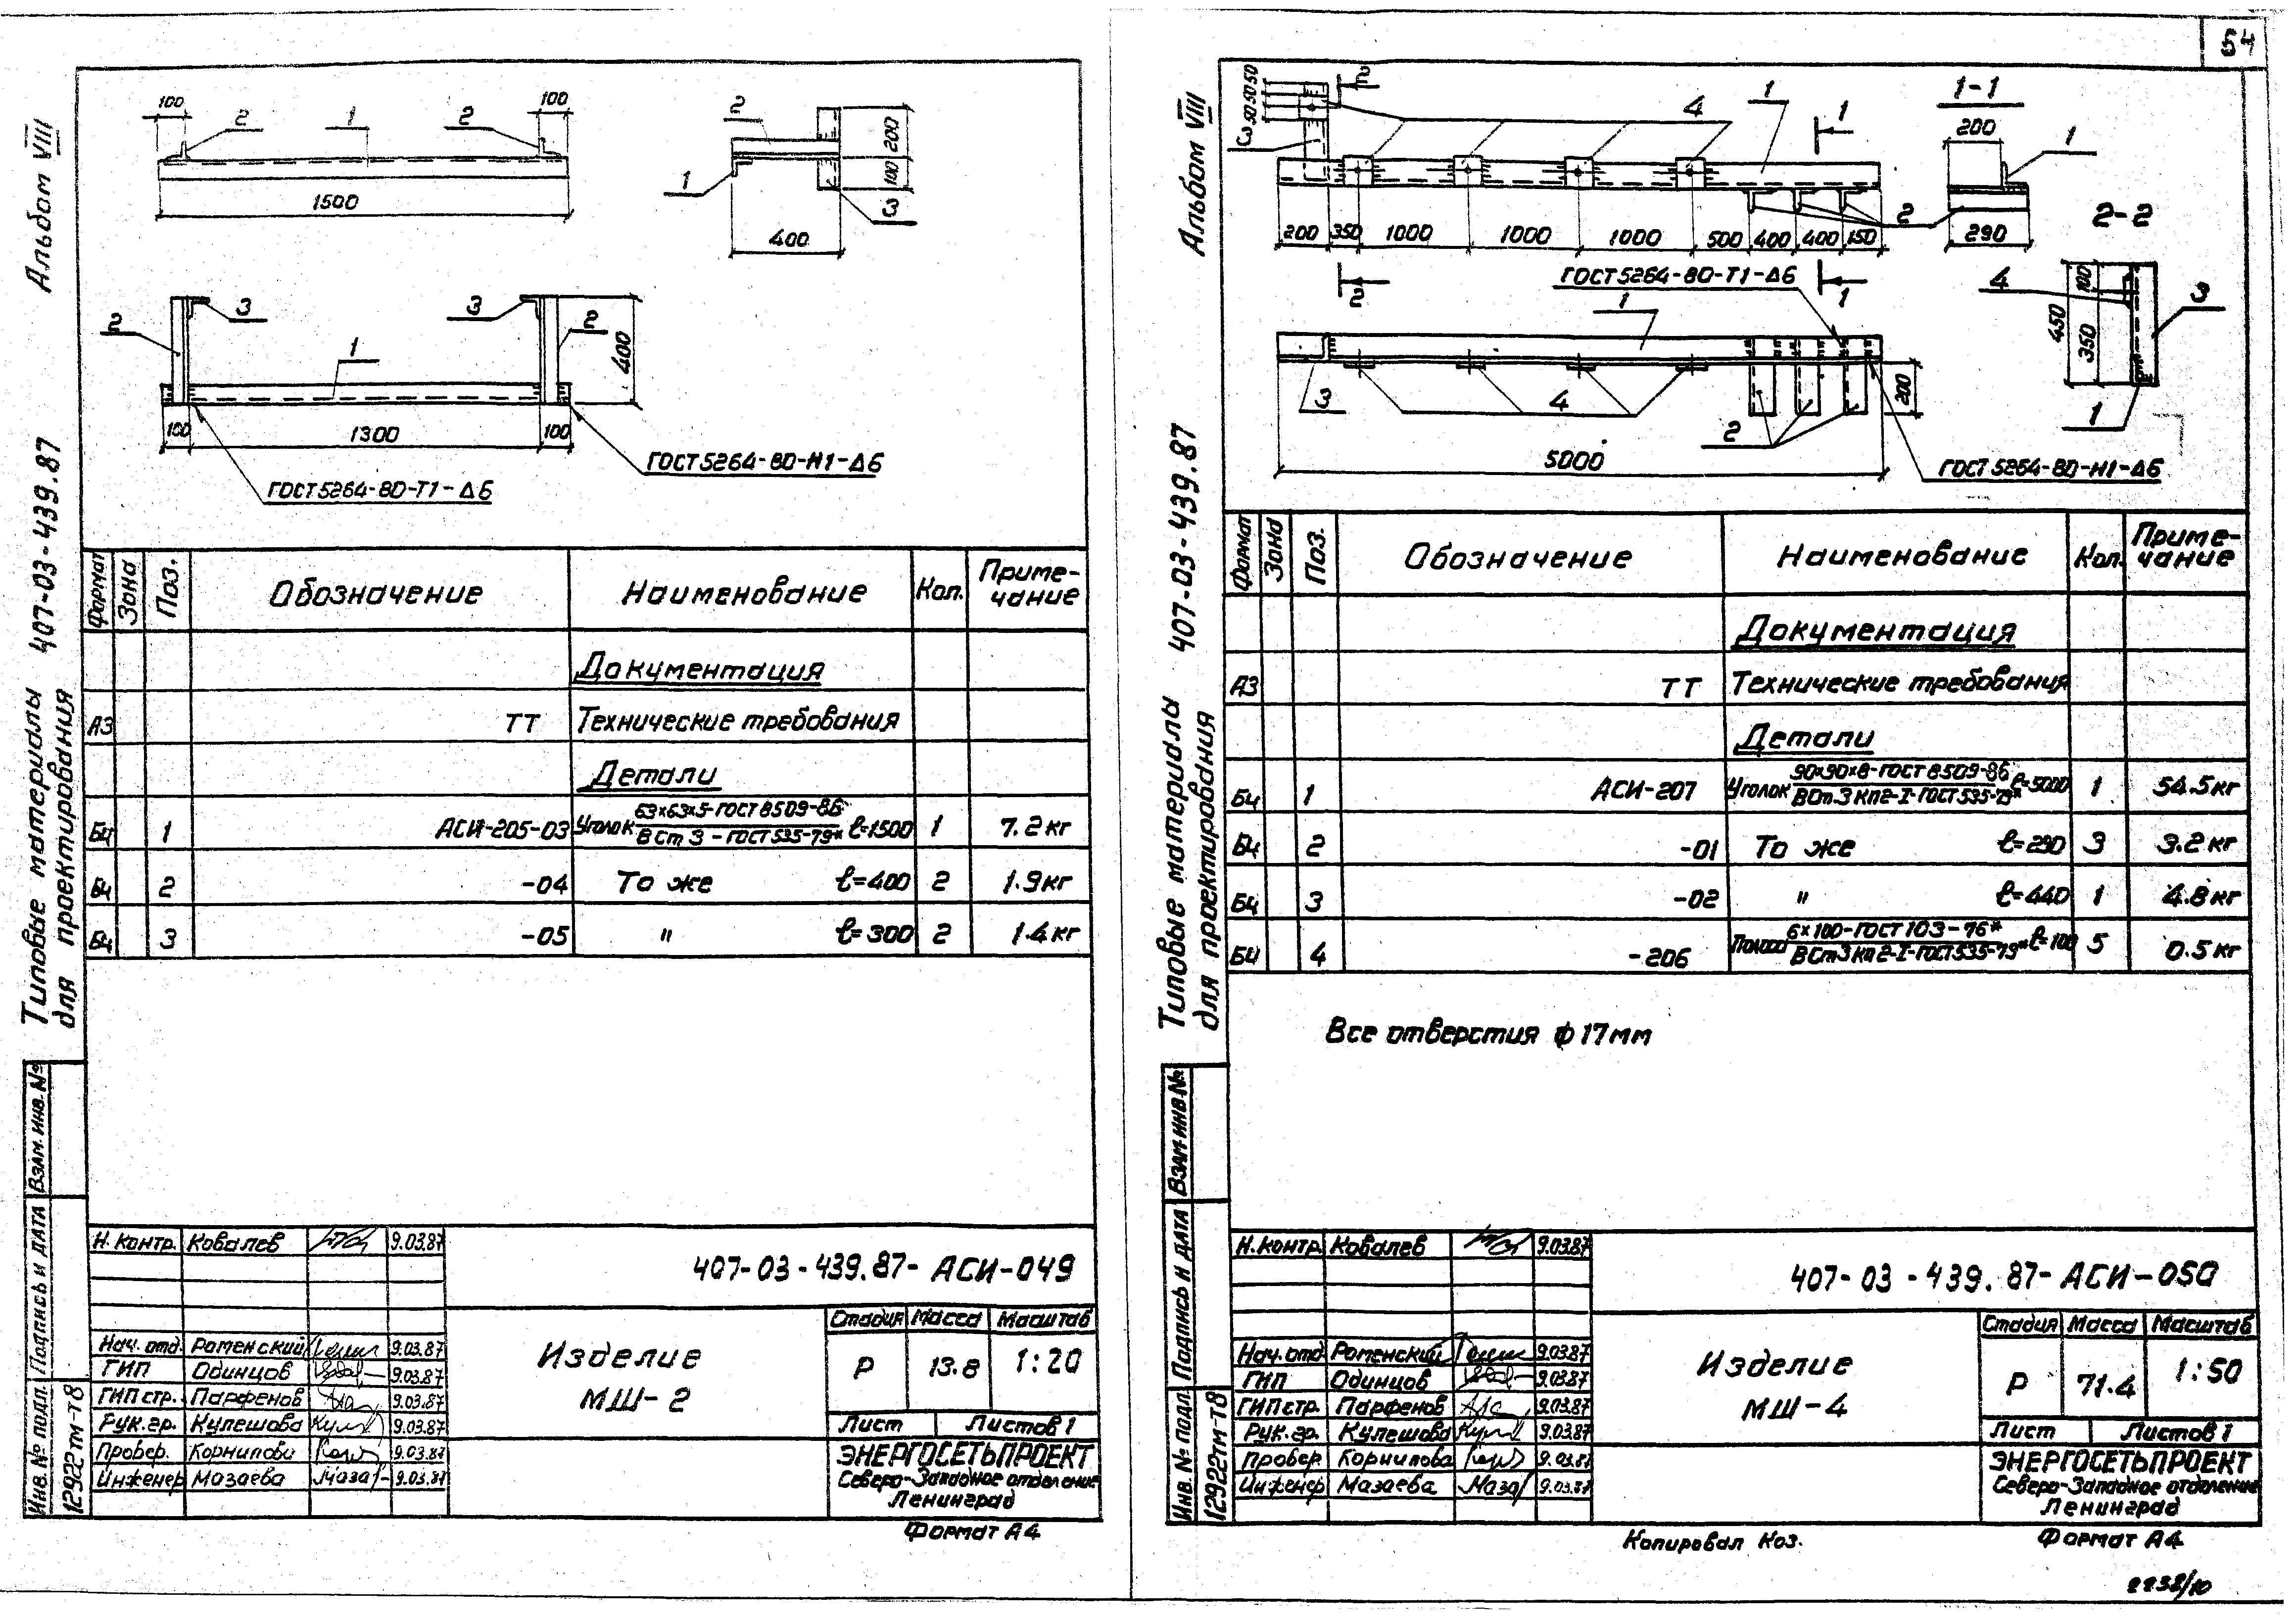 54
Альбом VIII
Типовые материалы 407-03-439.87
для проектирования
Взам. инв. №
Подпись и дата
Инв. № подл.
12922тм-т8
100
2
1
2
100
1500
2
200
100
1
3
400
2
3
3
2
1
400
100
1300
100
ГОСТ 5264-80-Н1-Δ6
ГОСТ 5264-80-Т1-Δ6
Формат Зона Поз. Обозначение Наименование Кол. Приме-
чание
Документация
А3 ТТ Технические требования
Детали
Бч 1 АСИ-205-03 Уголок 63×63×5-ГОСТ 8509-86 / ВСт3-ГОСТ 535-79* ℓ=1500 1 7.2 кг
Бч 2 -04 То же ℓ=400 2 1.9 кг
Бч 3 -05 " ℓ=300 2 1.4 кг
Н. контр. Ковалев 9.03.87
407-03-439.87-АСИ-049
Нач. отд. Роменский 9.03.87
ГИП Одинцов 9.03.87
ГИП стр. Парфенов 9.03.87
Рук. гр. Кулешова 9.03.87
Провер. Корнилова 9.03.87
Инженер Мазаева 9.03.87
Изделие
МШ-2
Стадия Масса Масштаб
Р 13.8 1:20
Лист Листов 1
ЭНЕРГОСЕТЬПРОЕКТ
Северо-Западное отделение
Ленинград
Формат А4
Альбом VIII
Типовые материалы 407-03-439.87
для проектирования
Взам. инв. №
Подпись и дата
Инв. № подл.
12922тм-т8
50 50 50 50
2
3
4
1
1
1-1
200
1
2
200 350 1000 1000 1000 500 400 400 150
290
2-2
2
ГОСТ 5264-80-Т1-Δ6
1
1
4
3
100
450
350
1
3
4
2
200
5000
ГОСТ 5264-80-Н1-Δ6
Формат Зона Поз. Обозначение Наименование Кол. Приме-
чание
Документация
А3 ТТ Технические требования
Детали
Бч 1 АСИ-207 Уголок 90×90×8-ГОСТ 8509-86 / ВСт3кп2-I-ГОСТ 535-79* ℓ=5000 1 54.5 кг
Бч 2 -01 То же ℓ=290 3 3.2 кг
Бч 3 -02 " ℓ=440 1 4.8 кг
Бч 4 -206 Полоса 6×100-ГОСТ 103-76* / ВСт3кп2-I-ГОСТ 535-79* ℓ=100 5 0.5 кг
Все отверстия ф 17мм
Н. контр. Ковалев 9.03.87
407-03-439.87-АСИ-050
Нач. отд. Роменский 9.03.87
ГИП Одинцов 9.03.87
ГИП стр. Парфенов 9.03.87
Рук. гр. Кулешова 9.03.87
Провер. Корнилова 9.03.87
Инженер Мазаева 9.03.87
Изделие
МШ-4
Стадия Масса Масштаб
Р 71.4 1:50
Лист Листов 1
ЭНЕРГОСЕТЬПРОЕКТ
Северо-Западное отделение
Ленинград
Копировал Коз.
Формат А4
2238/10